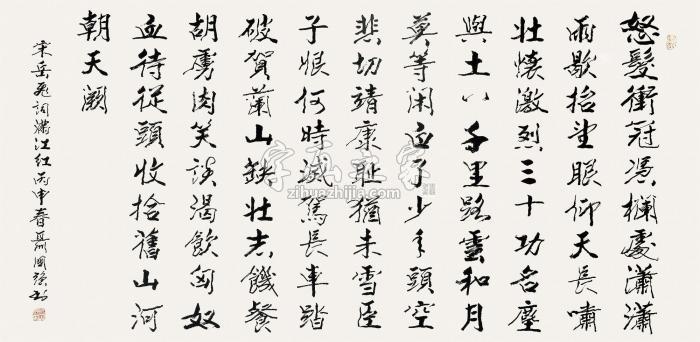 怒髮衝冠憑欄處瀟瀟
雨歇抬望眼仰天長嘯
壯懷激烈三十功名塵
與土八千里路雲和月
莫等閑白了少年頭空
悲切靖康恥猶未雪臣
子恨何時滅駕長車踏
破賀蘭山缺壯志饑餐
胡虜肉笑談渴飲匈奴
血待從頭收拾舊山河
朝天闕
宋岳飛詞滿江紅丙申春聶國強書
字画之家
zihuazhijia.com